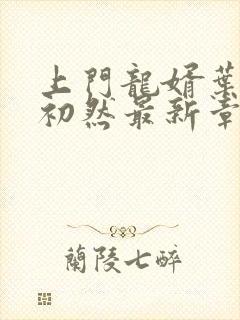 上門龍婿葉
初然最新章
蘭陵七醉